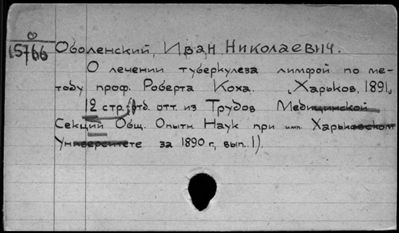 О
15766
Оболенский, Иван Николаевич.
О лечении туберкулеза лимфой по ме-
тоду проф. Роберта Коха. Харьков, 1891,
12 стр. (Отд. отт. из Трудов Медицинской
Секций Общ. Опытн Наук при имп. Харьковском
Университете за 1890 г, вып. 1).